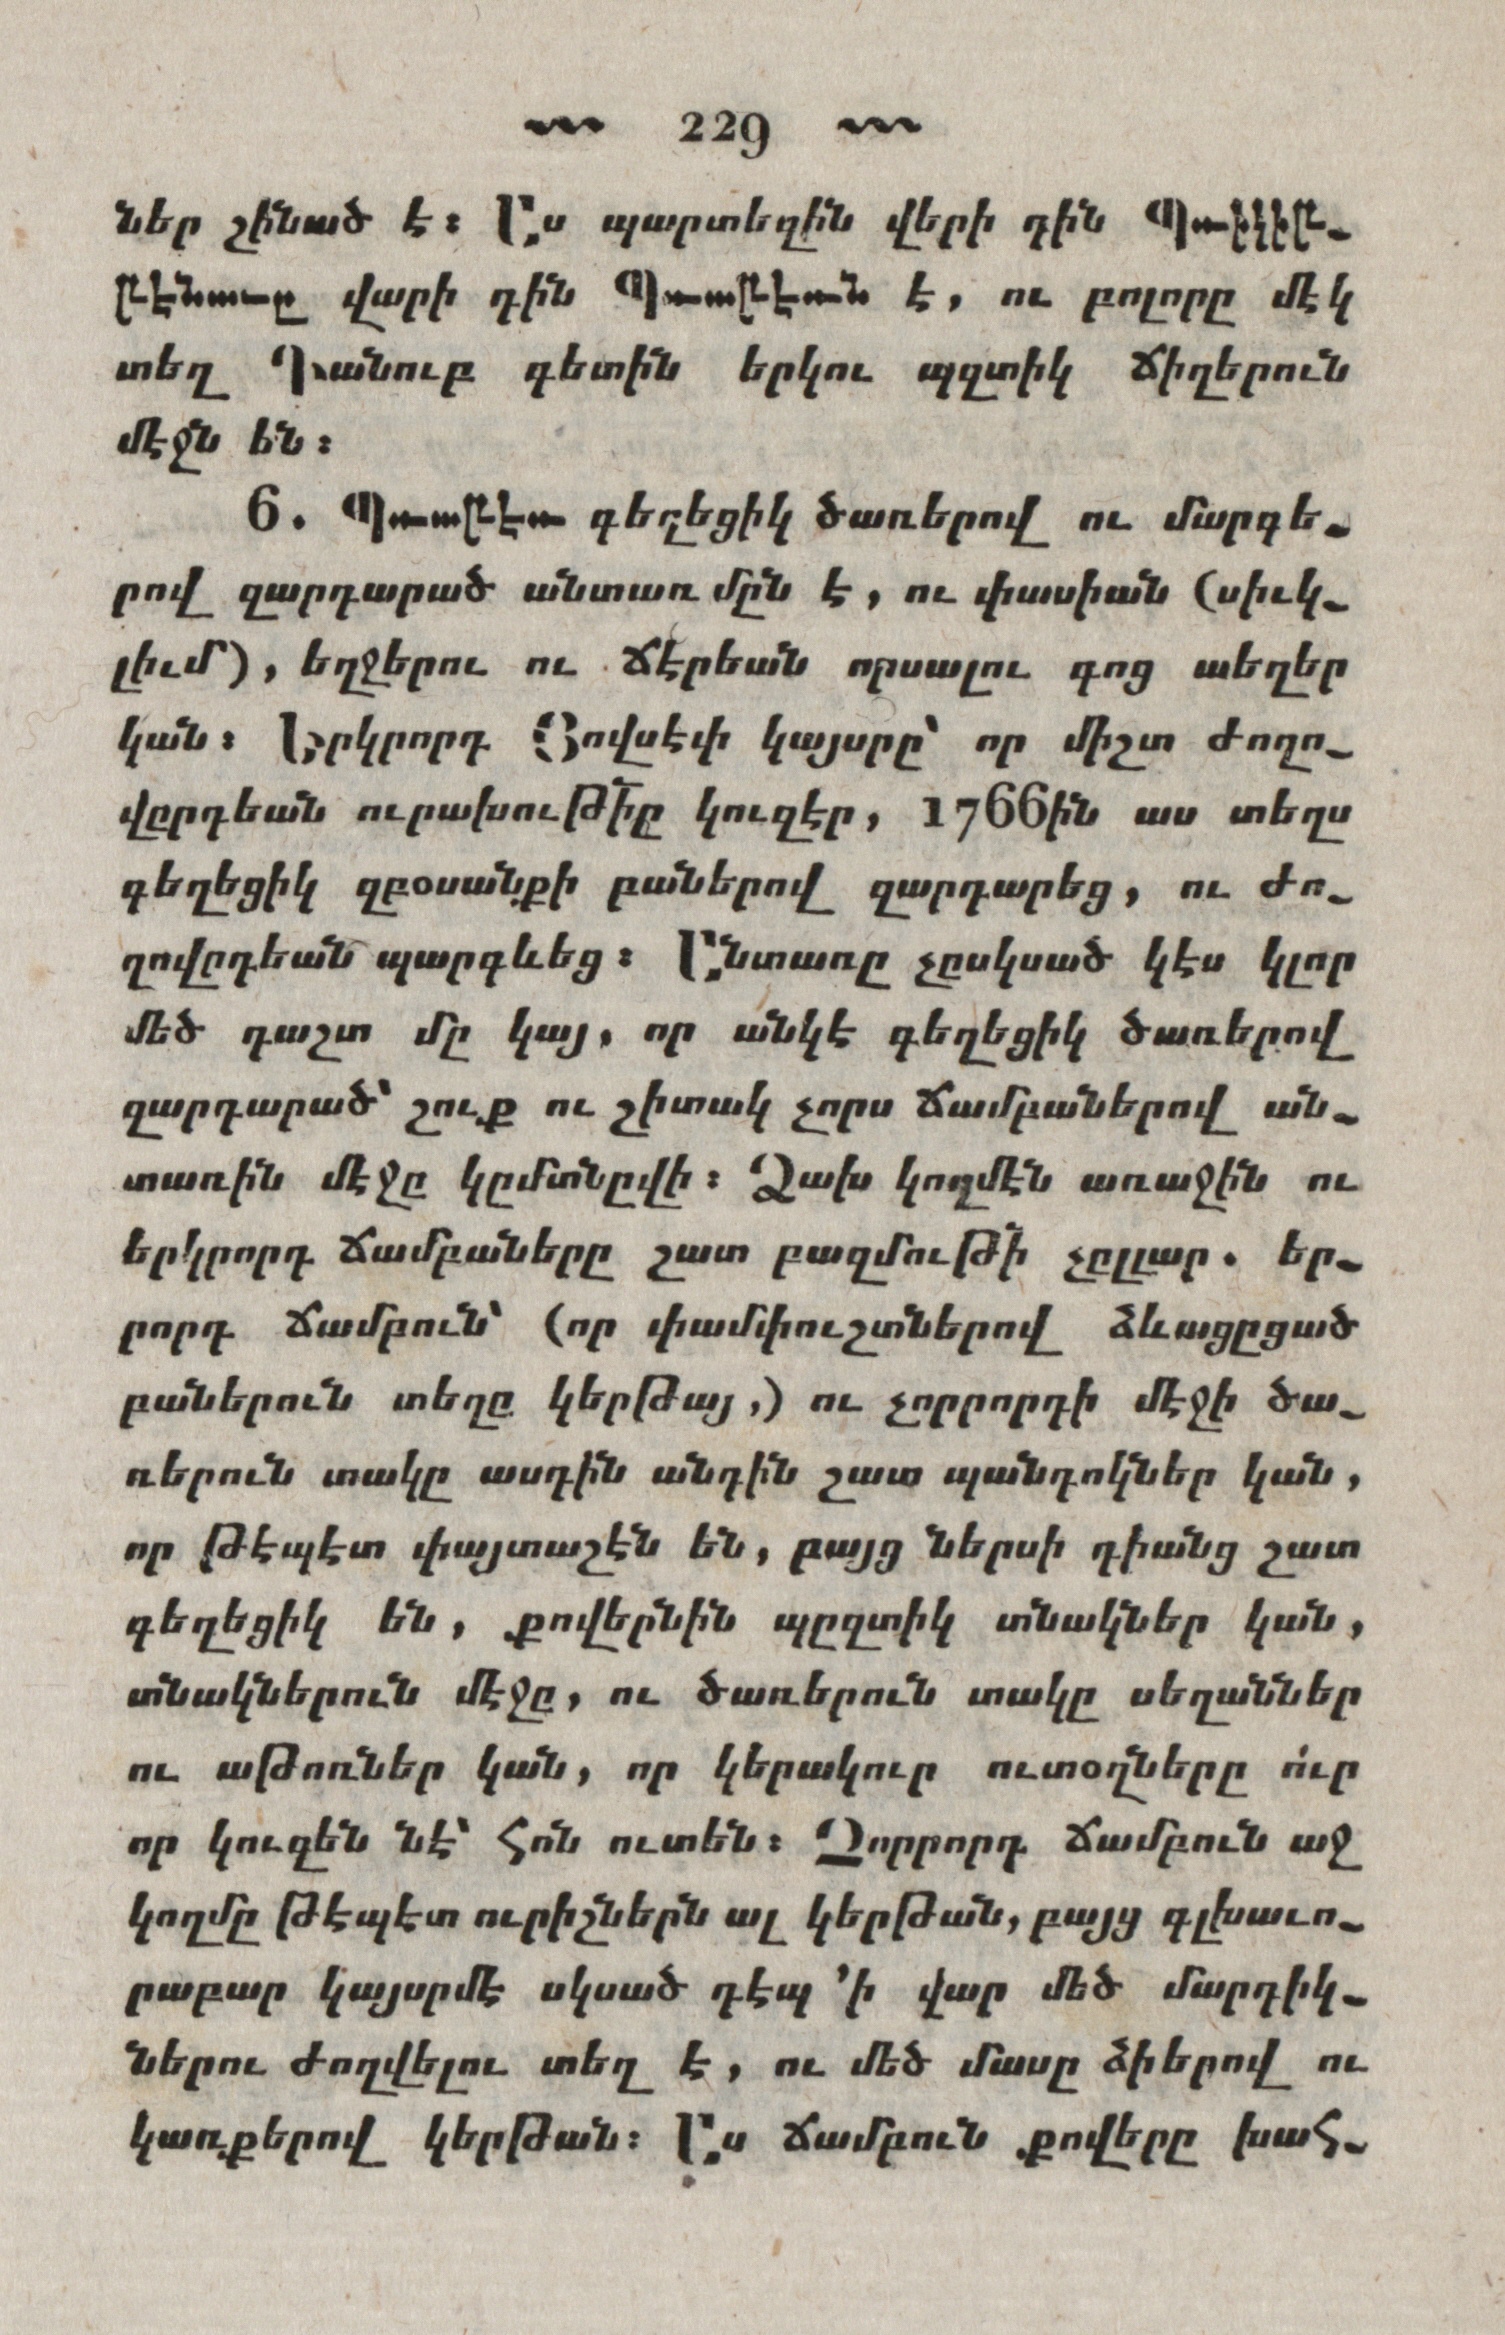 229
ներ շինած է։ Աս պարտեզին վերի դին Պռիկիը֊
լէնաւը վարի դին Պռադէռն է, ու բոլորը մէկ
տեղ Դանուբ գետին երկու պզտիկ ճիղերուն
մէջն են։
6. Պռադէռ գեղեցիկ ծառերով ու մարգե֊
րով զարդարած անտառ մըն է, ու փասիան (սիւկ֊
լիւմ), եղջերու ու ճէրեան որսալու գոց տեղեր
կան։ Երկրորդ Յովսէփ կայսրը՝ որ միշտ ժողո֊
վըրդեան ուրախութիւ̅ը կուզէր, 1766ին աս տեղս
գեղեցիկ զբօսանքի բաներով զարդարեց, ու ժո֊
ղովըդեան պարգևեց։ Անտառը չըսկսած կէս կլոր
մեծ դաշտ մը կայ, որ անկէ գեղեցիկ ծառերով
զարդարած՝ շուք ու շիտակ չորս ճամբաներով ան֊
տառին մէջը կըմտնըվի։ Ձախ կողմէն առաջին ու
երկրորդ ճամբաները շատ բազմութի̅ չըլլար. եր֊
րորդ ճամբուն՝ (որ փամփուշտներով ձևացըցած
բաներուն տեղը կերթայ,) ու չորրորդի մէջի ծա֊
ռերուն տակը ասդին անդին շատ պանդոկներ կան,
որ թէպէտ փայտաշէն են, բայց ներսի դիանց շատ
գեղեցիկ են, քովերնին պըզտիկ տնակներ կան,
տնակներուն մէջը, ու ծառերուն տակը սեղաններ
ու աթոռներ կան, որ կերակուր ուտօղները ո՛ւր
որ կուզեն նէ՝ հոն ուտեն։ Չորրորդ ճամբուն աջ
կողմը թէպէտ ուրիշներն ալ կերթան, բայց գլխաւո֊
րաբար կայսրմէ սկսած դէպ ՚ի վար մեծ մարդիկ֊
ներու ժողվելու տեղ է, ու մեծ մասը ձիերով ու
կառքերով կերթան։ Աս ճամբուն քովերը խահ֊